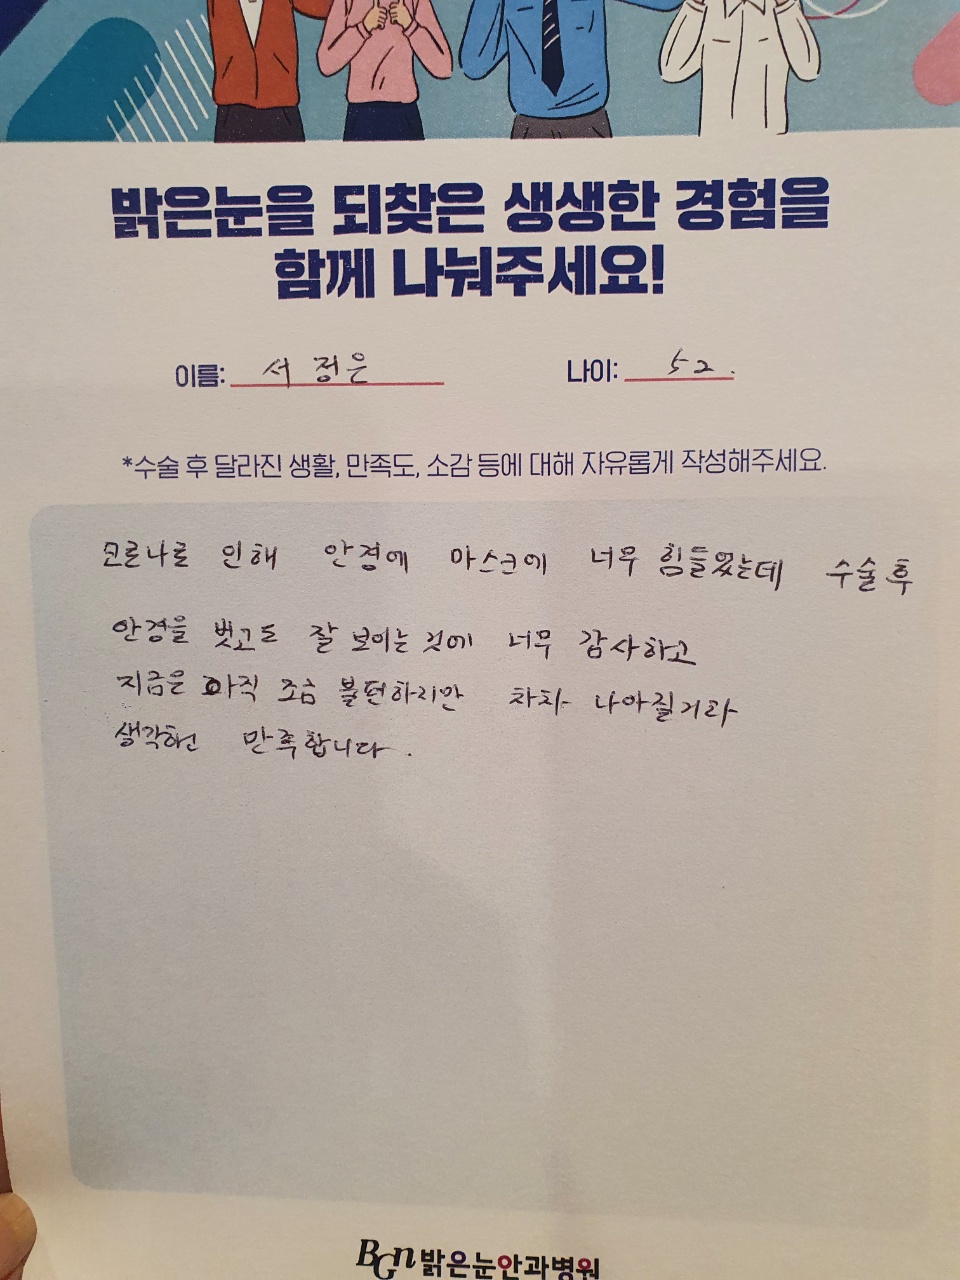 밝은눈을 되찾은 생생한 경험을
함께 나눠주세요!
이름: 서 정은 나이: 52.
*수술 후 달라진 생활, 만족도, 소감 등에 대해 자유롭게 작성해주세요.
코로나로 인해 안경에 마스크에 너무 힘들었는데 수술 후
안경을 벗고도 잘 보이는 것에 너무 감사하고
지금은 아직 조금 불편하지만 차차 나아질거라
생각하고 만족합니다.
BGn 밝은눈안과병원